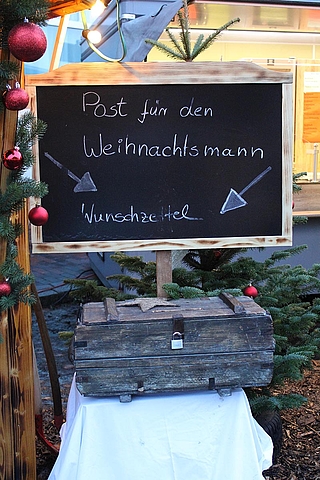 Post für den
Weihnachtsmann
Wunschzettel